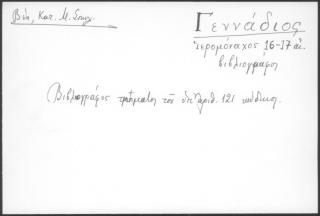 Βέη, Κατ. Μ.
Γεννάδιος
ἱερομόναχος 16-17 αἰ.
βιβλιογράφος
Βιβλιογράφος τμήματος τοῦ ὑπ' ἀριθ. 121 κώδικος.